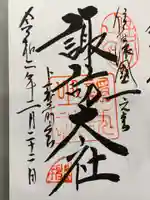 信濃國一之宮
諏訪大社
上社本宮
令和二年一月二十二日